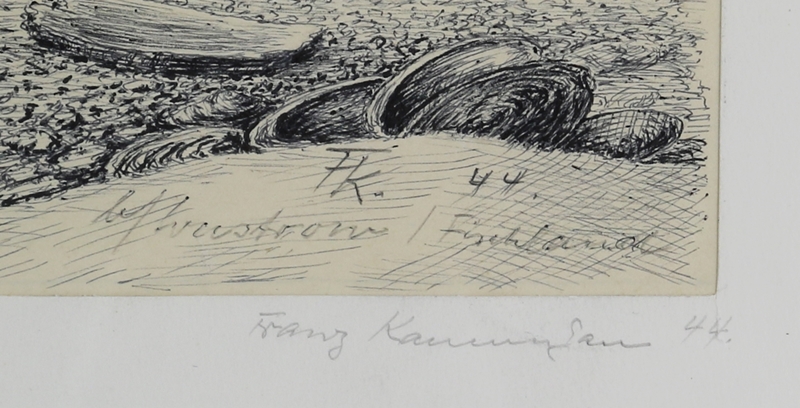 FK. 44.
Wustrow / Fischland
Franz 44.